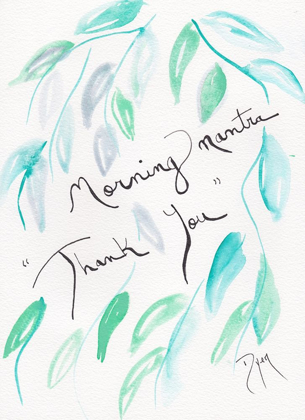 Morning Mantra
"Thank You"